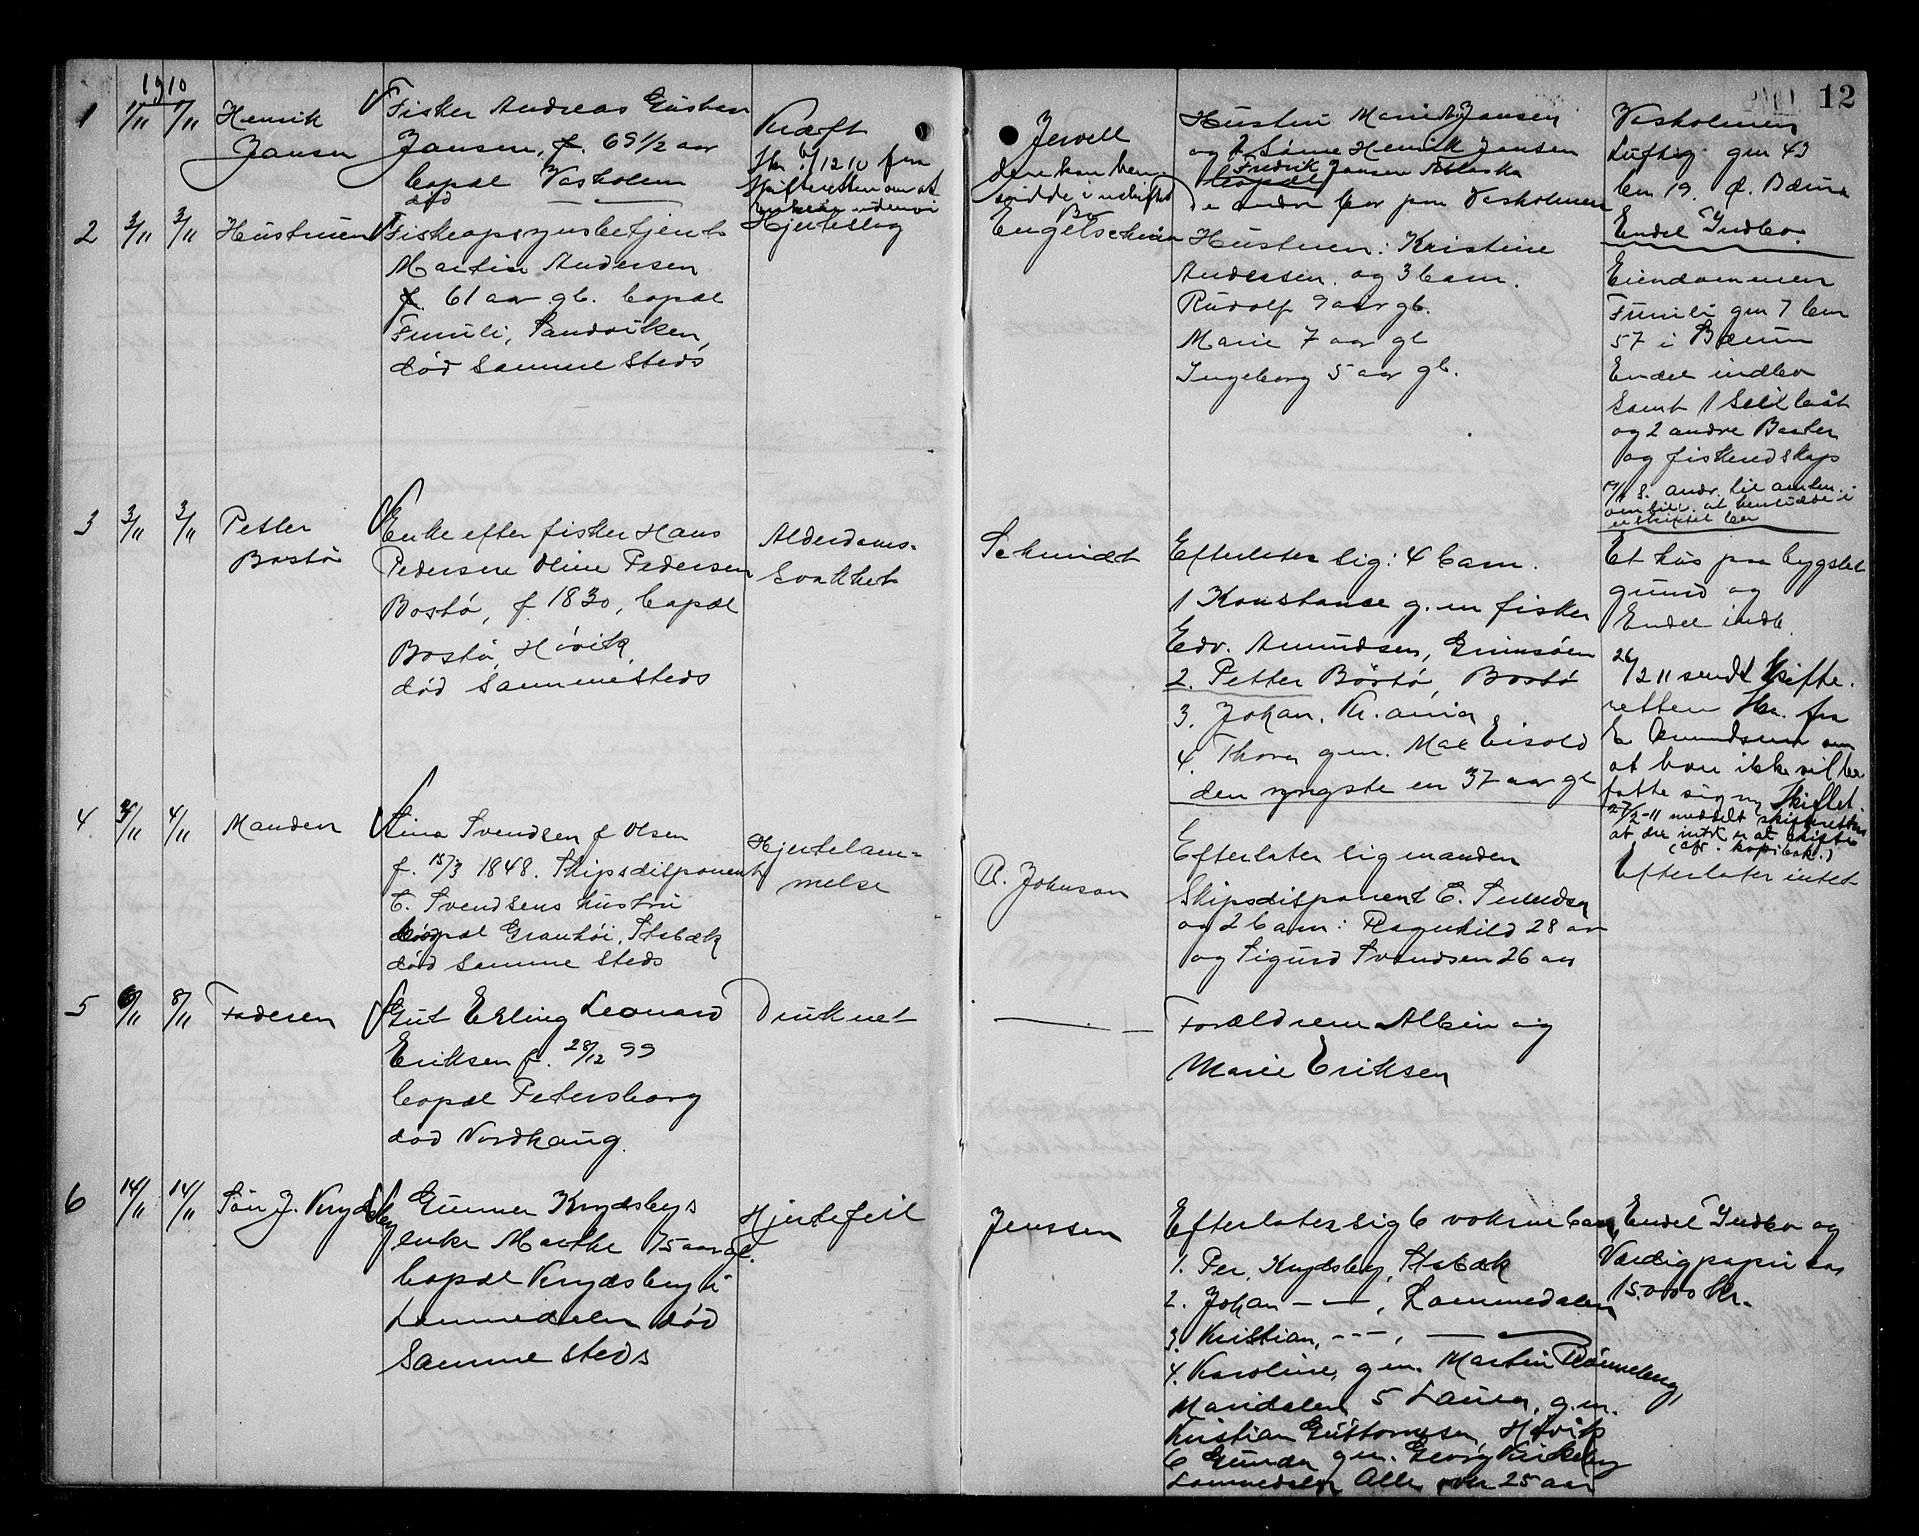 1910
12
1
1/11
1/11
Henrik
Jansen
Fisker Andreas Gustav
Jansen, f. 69 1/2 aar
bopæl Vasholmen
død — —
Kræft
Skr. 6/12 10 fra
Skifteretten om at
enken
Jervell
kan hen-
sidde i uskiftet
Bo
Hustru Marie A. Jansen
og 2 Sønne Henrik Jansen
Fredrik Jansen Alaska
bopæl
De andre bor paa Vasholmen
Vasholmen
Luftig gn 43
bn 19. Ø. Bærum
Endel Indbo.
2
3/11
3/11
Hustruen
Fiskeopsynsbetjent
Martin Andersen
f. 61 aar gl. bopæl
Furuli, Sandviken,
død samme steds
Hjerteslag
Engelschiøn
Hustruen: Kristine
Andersen. og 3 barn.
Rudolf 9 aar gl.
Marie 7 aar gl
Ingeborg 5 aar gl.
Eiendommen
Furuli gn 7 bn
57 i Bærum
Endel indbo
samt 1 Seilbåt
og 2 andre Baater
og fiskeredskap
andr. til amtm.
om bev. at hensidde i
uskiftet bo
3
3/11
3/11
Petter
Bostø
Enke efter fisker Hans
Pedersen Oline Pedersen
Bostø, f. 1830, bopæl
Bostø, Høvik,
død sammesteds
Alderdoms-
svakhet
Schmidt
Efterlater sig: 4 barn.
1 Konstanse g. m fisker
Edv. Amundsen, Grimsøen
2. Petter Börstø, Bostø
3. Johan, Kr.ania
4. Thora gm. Max Eisold
den yngste en 37 aar gl
Et hus paa bygslet
grund og
Endel indb.
26/2 11 sendt Skifte-
retten Skr. fra
E Amundsen om
at han ikke vil be-
fatte sig m Skiftet.
27/2-11 meddelt skifteretten
at der intet er at skifte
(cfr. kopibok.)
4
3/11
4/11
Manden
Lina Svendsen f Olsen
f. 15/3 1848. Skipsdisponent
C. Svendsens hustru
bopæl Granhøi, Stabæk
død samme steds
Hjertelam-
melse
R. Johnson
Efterlater sig manden
Skipsdisponent C. Svendsen
og 2 barn: Ragnhild 28 aar
og Sigurd Svendsen 26 aar
Efterlater intet
5
6/11
8/11
Faderen
Gut Erling Leonard
Eriksen f. 28/12 99
bopæl Petersborg
død Nordhaug.
Druknet
— —
Forældrene Albin og
Marie Eriksen
6
14/11
14/11
Søn J. Krydsby
Gunner Krydsbys
enke Marthe 75 aar gl.
bopæl Krydsby i
Lommedalen død
samme steds
Hjertefeil
Jenssen
Efterlater sig 6 voksne barn,
1. Per, Krydsby, Stabæk
2. Johan — — , Lommedalen
3. Kristian, - - - , —
4. Karoline, gm. Martin Rönneberg,
Maridalen 5 Laura, g.m.
Kristian Guttormsen, Høvik
6 Gunda gm. Georg Kirkeby
Lommedalen Alle over 25 aar
Endel Indbo og
Værdipapir ca
15,000 kr.